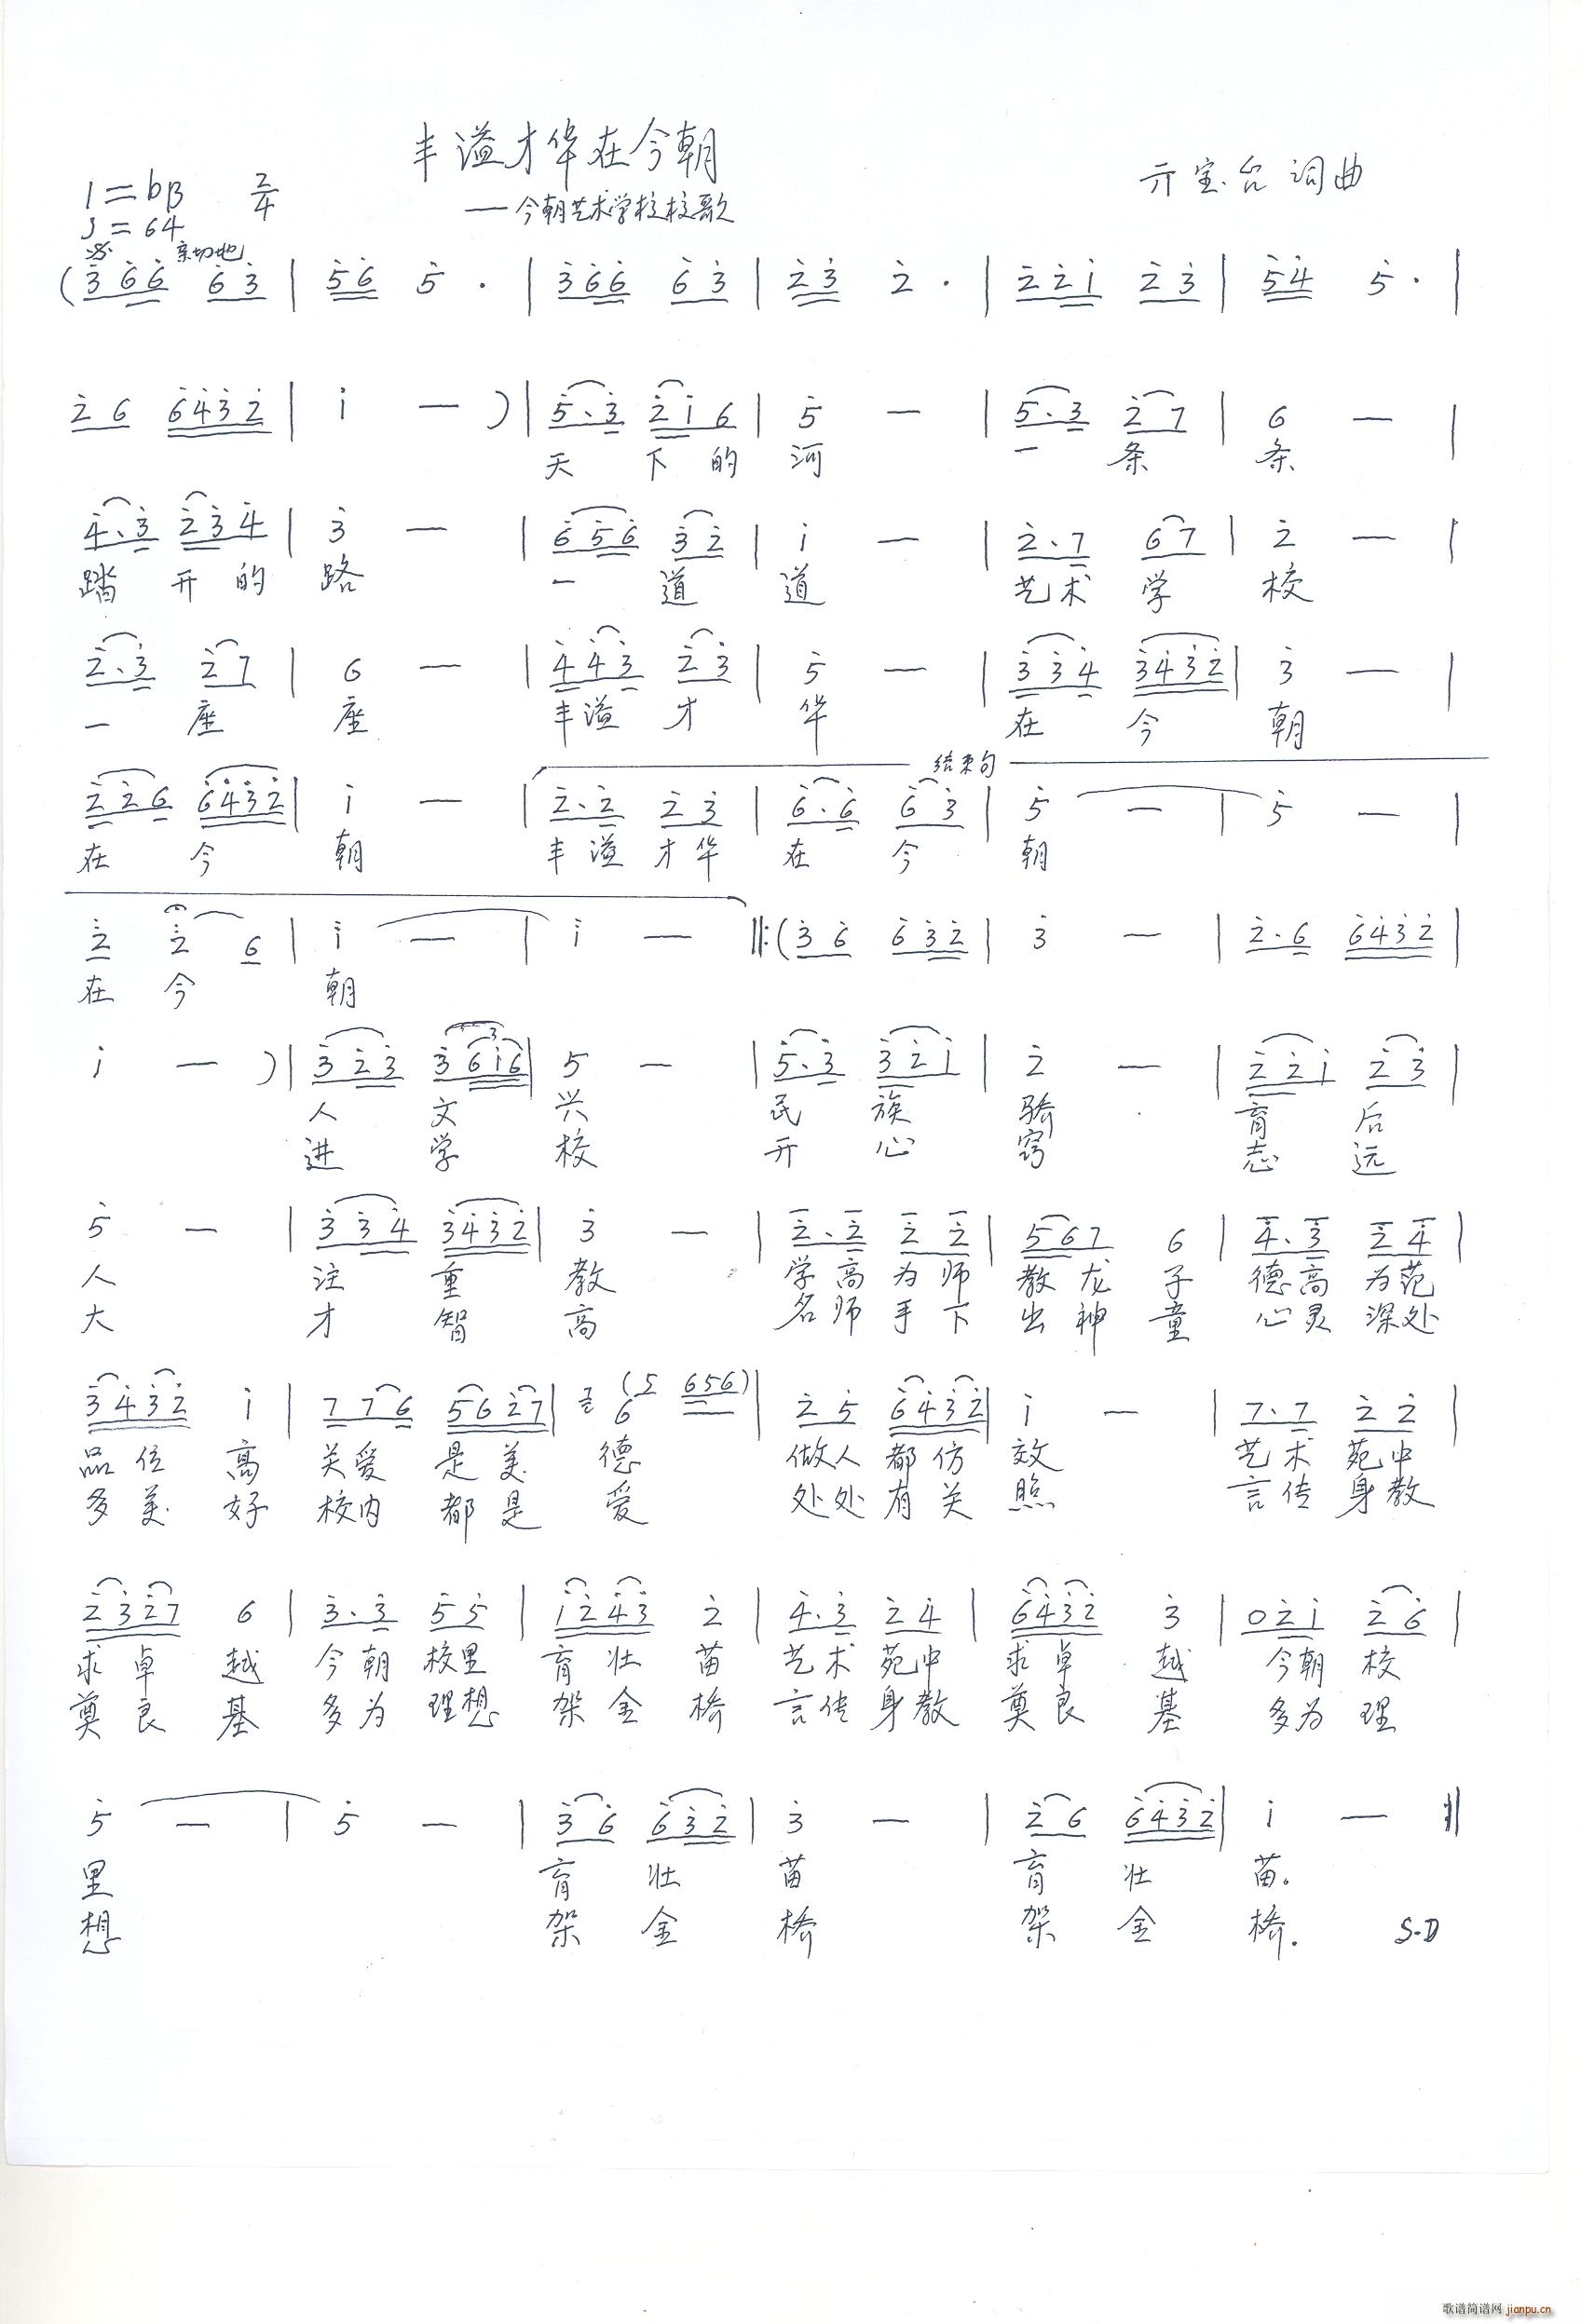 丰溢才华在今朝
1=bB 2/4 ——今朝艺术学校校歌 亓宝台 词曲
♩=64
亲切地
(3̇6̇6̇ 6̇3̇ | 5̇6̇ 5̇· | 3̇6̇6̇ 6̇3̇ | 2̇3̇ 2̇· | 2̇2̇1̇ 2̇3̇ | 5̇4̇ 5̇· |
2̇6 6̇4̇3̇2̇ | 1̇ — ) | 5̇·3̇ 2̇1̇6 | 5̇ — | 5̇·3̇ 2̇7 | 6 — |
天 下 的 河 一 条 条
4̇·3̇ 2̇3̇4̇ | 3̇ — | 6̇5̇6̇ 3̇2̇ | 1̇ — | 2̇·7 67 | 2̇ — |
踏 开 的 路 一 道 道 艺术 学 校
2̇·3̇ 2̇7 | 6 — | 4̇4̇3̇ 2̇3̇ | 5̇ — | 3̇3̇4̇ 3̇4̇3̇2̇ | 3̇ — |
一 座 座 丰溢 才 华 在 今 朝
结束句
2̇2̇6 6̇4̇3̇2̇ | 1̇ — | 2̇·2̇ 2̇3̇ | 6̇·6̇ 6̇3̇ | 5̇ — | 5̇ — |
在 今 朝 丰溢 才华 在 今 朝
2̇ 2̇ 6 | 1̇ — | 1̇ — ‖:(3̇6̇ 6̇3̇2̇ | 3̇ — | 2̇·6 6̇4̇3̇2̇ |
在 今 朝
1̇ — ) | 3̇2̇3̇ 3̇61̇6 | 5 — | 5̇·3̇ 3̇2̇1̇ | 2̇ — | 2̇2̇1̇ 2̇3̇ |
人 文 兴 民 族 骄 育 后
进 学 校 开 心 窍 志 远
5̇ — | 3̇3̇4̇ 3̇4̇3̇2̇ | 3̇ — | 2̇·2̇ 2̇2̇ | 567 6 | 4̇·3̇ 2̇4̇ |
人 注 重 教 学高 为师 教龙 子 德高 为范
大 才 智 高 名师 手下 出神 童 心灵 深处
3̇4̇3̇2̇ 1̇ | 776 562̇7 | 6 (5 656) | 2̇5̇ 6̇4̇3̇2̇ | 1̇ — | 7·7 2̇2̇ |
品位 高 关爱 是美 德 做人 都仿 效 艺术 苑中
多美 好 校内 都是 爱 处处 有关 照 言传 身教
2̇3̇2̇7 6 | 3̇·3̇ 5̇5̇ | 1̇2̇4̇3̇ 2̇ | 4̇·3̇ 2̇4̇ | 6̇4̇3̇2̇ 3̇ | 02̇1̇ 2̇6 |
求卓 越 今朝 校里 育壮 苗 艺术 苑中 求卓 越 今朝 校
奠良 基 多为 理想 架金 桥 言传 身教 奠良 基 多为 理
5̇ — | 5̇ — | 3̇6̇ 6̇3̇2̇ | 3̇ — | 2̇6 6̇4̇3̇2̇ | 1̇ — :‖
里 育 壮 苗 育 壮 苗。
想 架 金 桥 架 金 桥. S.D
歌谱简谱网 jianpu.cn